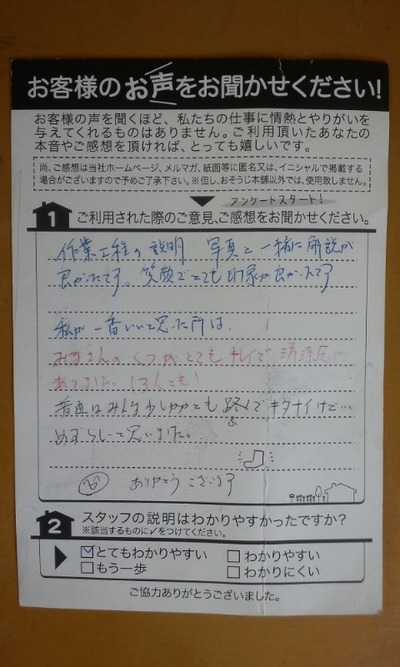 お客様のお声をお聞かせください!
お客様の声を聞くほど、私たちの仕事に情熱とやりがいを
与えてくれるものはありません。ご利用頂いたあなたの
本音やご感想を頂ければ、とっても嬉しいです。
尚、ご感想は当社ホームページ、メルマガ、紙面等に匿名又は、イニシャルで掲載する
場合がございますので予めご了承下さい。※但し、おそうじ本舗以外では、使用致しません。
アンケートスタート!
1 ご利用された際のご意見、ご感想をお聞かせください。
作業工程の説明 写真と一緒に解説が
良かたです。笑顔でとても印象が良かたです
私が一番いいと思った所は
みなさんの くつがとても キレイで 清潔感が
ありました (3人とも)
普通はみんな少しかかとも踏んで キタナイけど…
めずらしいと思いました。
ありがとう ございます
2 スタッフの説明はわかりやすかったですか?
※該当するものに✓をつけてください。
☑とてもわかりやすい □わかりやすい
□もう一歩 □わかりにくい
ご協力ありがとうございました。